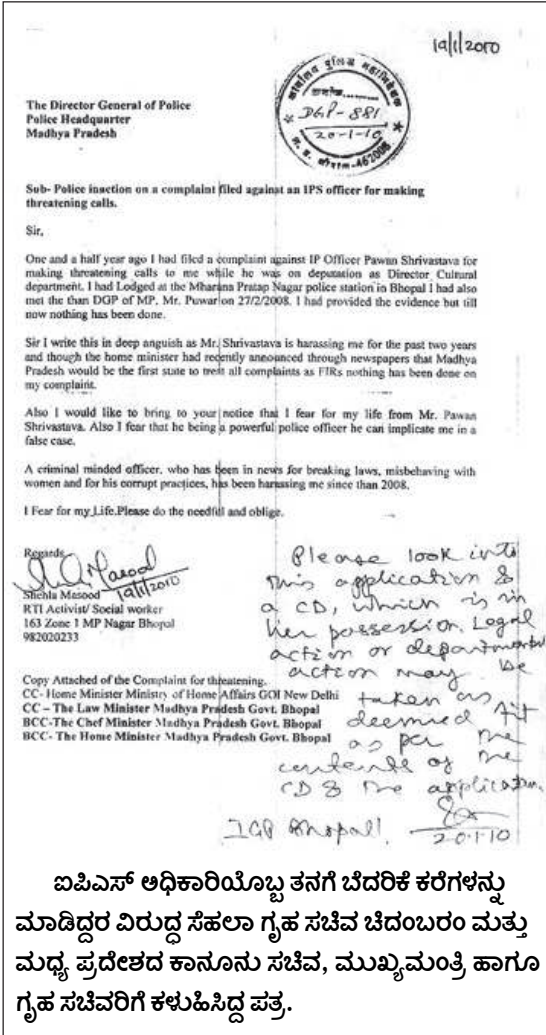 19/1/2010
कार्यालय पुलिस महानिदेशक
DGP-881
20-1-10
म. प्र. भोपाल-462008
The Director General of Police
Police Headquarter
Madhya Pradesh
Sub- Police inaction on a complaint filed against an IPS officer for making
threatening calls.
Sir,
One and a half year ago I had filed a complaint against IP Officer Pawan Shrivastava for
making threatening calls to me while he was on deputation as Director Cultural
department. I had Lodged at the Mharana Pratap Nagar police station in Bhopal I had also
met the than DGP of MP, Mr. Puwar on 27/2/2008. I had provided the evidence but till
now nothing has been done.
Sir I write this in deep anguish as Mr. Shrivastava is harassing me for the past two years
and though the home minister had recently announced through newspapers that Madhya
Pradesh would be the first state to treat all complaints as FIRs nothing has been done on
my complaint.
Also I would like to bring to your notice that I fear for my life from Mr. Pawan
Shrivastava. Also I fear that he being a powerful police officer he can implicate me in a
false case.
A criminal minded officer, who has been in news for breaking laws, misbehaving with
women and for his corrupt practices, has been harassing me since than 2008.
I Fear for my Life.Please do the needful and oblige.
Regards
19/1/2010
Shehla Masood
RTI Activist/ Social worker
163 Zone 1 MP Nagar Bhopal
982020233
Copy Attached of the Complaint for threatening.
CC- Home Minister Ministry of Home Affairs GOI New Delhi
CC – The Law Minister Madhya Pradesh Govt. Bhopal
BCC-The Chef Minister Madhya Pradesh Govt. Bhopal
BCC- The Home Minister Madhya Pradesh Govt. Bhopal
Please look into
this application &
a CD, which is in
her possession. Legal
action or departmental
action may be
taken as
deemed fit
as per the
contents of the
CD & the application.
20.1.10
IGP Bhopal
ಐಪಿಎಸ್ ಅಧಿಕಾರಿಯೊಬ್ಬ ತನಗೆ ಬೆದರಿಕೆ ಕರೆಗಳನ್ನು
ಮಾಡಿದ್ದರ ವಿರುದ್ಧ ಸೆಹಲಾ ಗೃಹ ಸಚಿವ ಚಿದಂಬರಂ ಮತ್ತು
ಮಧ್ಯ ಪ್ರದೇಶದ ಕಾನೂನು ಸಚಿವ, ಮುಖ್ಯಮಂತ್ರಿ ಹಾಗೂ
ಗೃಹ ಸಚಿವರಿಗೆ ಕಳುಹಿಸಿದ್ದ ಪತ್ರ.